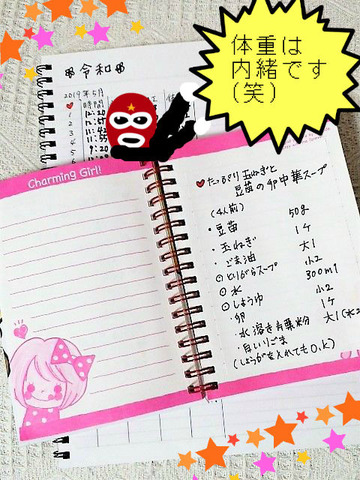 体重は
内緒です
(笑)
令和
2019年5月
時間
1 12:20
2
3
4
5
6 9:20
Charming Girl!
たっぷり玉ねぎと
豆苗の卵中華スープ
(4人前)
・豆苗 50g
・玉ねぎ 1ケ
・ごま油 大1
⊙とりがらスープ 小2
⊙水 300ml
⊙しょうゆ 小2
・卵 1ケ
・水溶き片栗粉 大1(水2
・白いりごま
(しょうがを入れてもO.K)